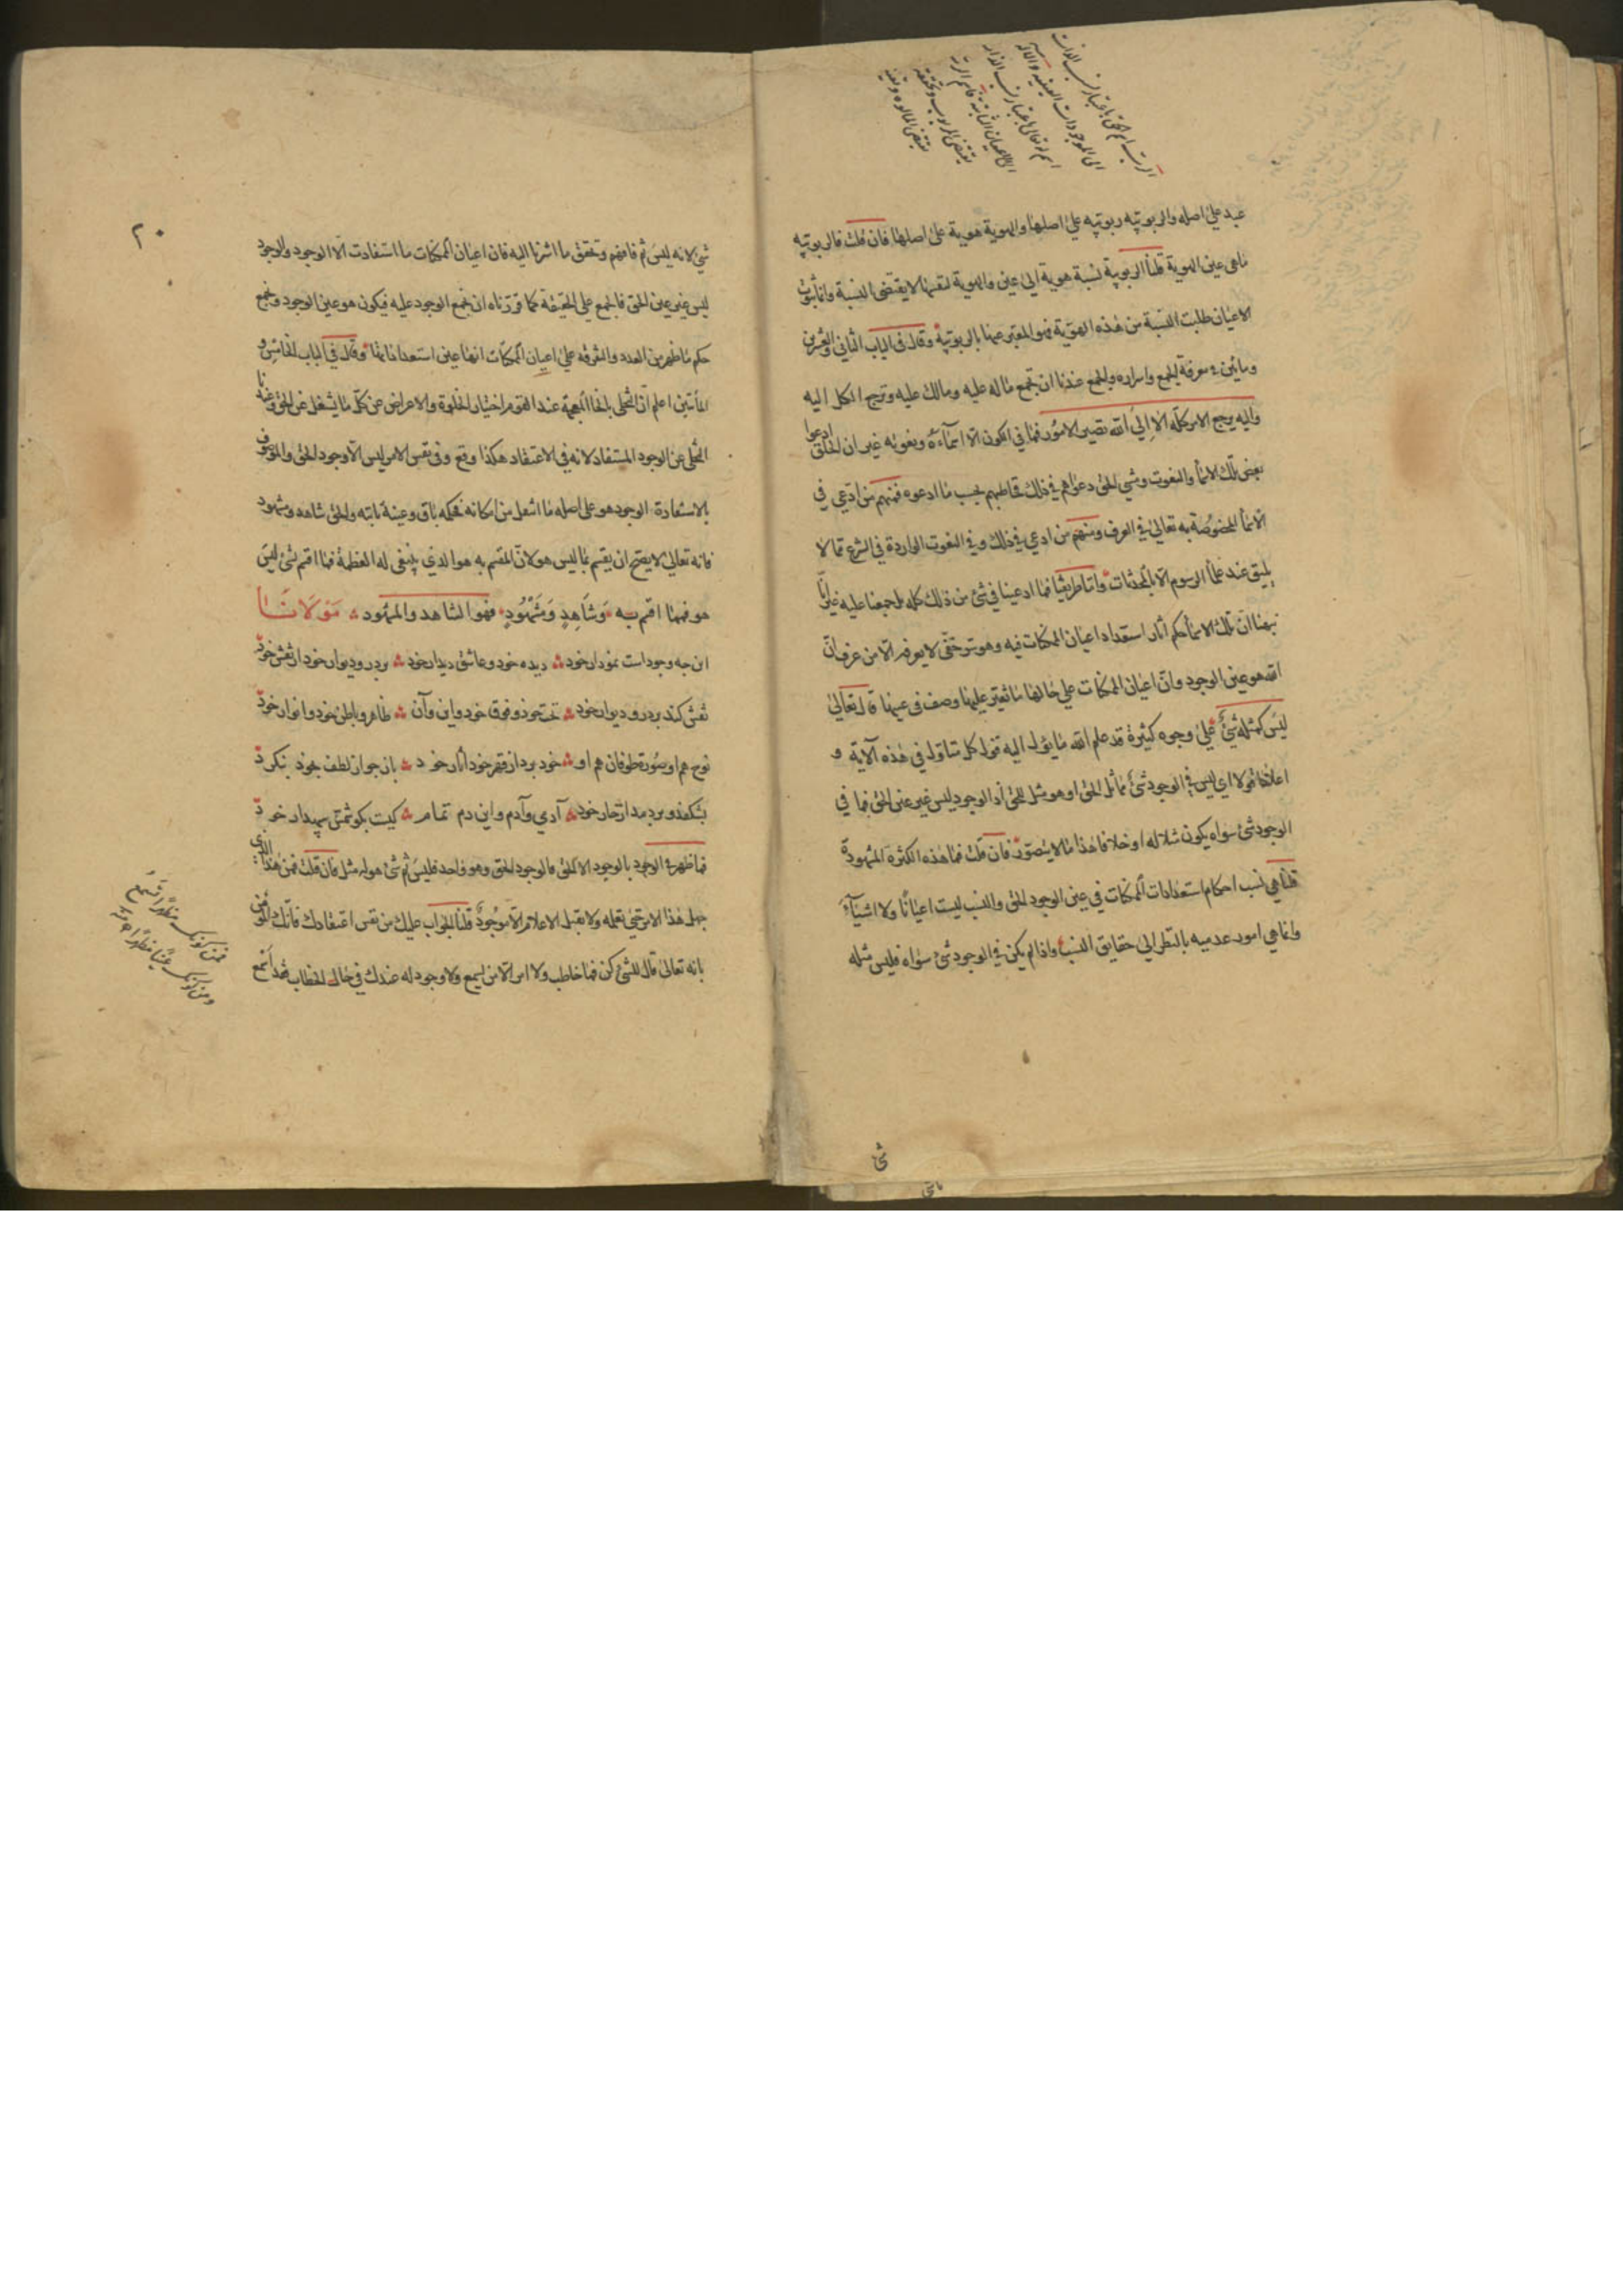 عبد على اصله والربوبيه ربوبيه على اصلها والهوية هوية على اصلها فان قلت فالربوبيه
ماهى عين الهوية قلنا الربوبية نسبة هوية الى عين والهوية لنفسها لا يقتضى النسبة وانما ثبوت
الاعيان طلبت النسبة من هذه الهوية فهو المعبر عنها بالربوبية وقال فى الباب الثانى والعشرين
ومأتين فى معرفة الجمع واسراره والجمع عندنا ان تجمع ماله عليه ومالك عليه وترجع الكل اليه
واليه يرجع الامر كله الا الى الله تصير الامور فما فى الكون الا اسماءه ونعوته غير ان الخلق ادعوا
بعض تلك الاسما والنعوت ومشى الحق دعواهم فى ذلك فخاطبهم بحسب ما ادعوه فمنهم من ادعى فى
الاسما المخصوصة به تعالى فى العرف ومنهم من ادعى فى ذلك وفى النعوت الواردة فى الشرع مما لا
يليق عند علما الرسوم الا بالمحدثات واما طريقنا فما ادعينا فى شئ من ذلك كله بل جمعنا عليه غير انا
نبهنا ان تلك الاسما حكم اثار استعداد اعيان الممكنات فيه وهو سر خفى لا يعرفه الا من عرف ان
الله هو عين الوجود وان اعيان الممكنات على حالها ما تغير عليها وصف فى عينها قال تعالى
ليس كمثله شئ على وجوه كثيرة قد علم الله ما يؤل اليه قول كل متاول فى هذه الآية و
اعلاها قولا اى ليس فى الوجود شئ يماثل الحق او هو مثل للحق اذ الوجود ليس غير عين الحق فما فى
الوجود شئ سواه يكون مثلا له او خلافا هذا ما لا يتصور فان قلت فما هذه الكثرة المشهودة
قلنا هى نسب احكام استعدادات الممكنات فى عين الوجود الحق والنسب ليست اعيانا ولا اشيآء
وانما هى امور عدميه بالنظر الى حقايق النسب واذا لم يكن فى الوجود شئ سواه فليس مثله
شئ
٢٠
شئ لانه ليس ثم فافهم وتحقق ما اشرنا اليه فان اعيان الممكنات ما استفادت الا الوجود والوجود
ليس غير عين الحق فالجمع على الحقيقة كما قررناه ان تجمع الوجود عليه فيكون هو عين الوجود وتجمع
حكم ما ظهر من العدد والتفرقة على اعيان الممكنات انها عين استعداداتها وقال فى الباب الخامس و
المأتين اعلم ان التحلى بالخا المعجمة عند القوم اختيار الخلوة والاعراض عن كل ما يشغل عن الحق وعندنا
التخلى عن الوجود المستفاد لانه فى الاعتقاد هكذا وقع وفى نفس الامر ليس الا وجود الحق والموصوف
بالاستفادة الوجود هو على اصله ما انتقل من امكانه فحكمه باق وعينه ثابته والحق شاهد ومشهود
فانه تعالى لا يصح ان يقسم بما ليس هو لان المقسم به هو الذى ينبغى له العظمة فما اقسم بشئ ليس
هو فهما اقسم به وَشَاهِدٍ وَمَشْهُودٍ فهو الشاهد والمشهود مَوْلَانَا
اين جه وجوداست نمودار خود ديده خود وعاشق ديدار خود بردر وديوار خود از نقش خود
نقش كند بردر وديوار خود تحت خود وفوق خود واين وآن ظاهر وباطن خود وانوار خود
نوح هم او صورة طوفان هم او خود برد از قهر خود آثار خود باز جو از لطف بخود بنكرد
بشكفد وبردمد از خار خود آدمى وآدم واين دم تمام كيست بكو شمتى سپهدار خود
فما ظهر فى الوجود بالوجود الا الحق فالوجود الحق وهو واحد فليس ثم شئ هو له مثل فان قلت فمن هذا الذى
جهل هذا الامر حتى تعلمه ولا تقبل الاعلام الا موجودٌ قلنا الجواب عليك من نفس اعتقادك فانك المؤمن
بانه تعالى قال للشئ كن فما خاطب ولا امر الا من يسمع ولا وجود له عندك فى حال الخطاب فقد اسمع